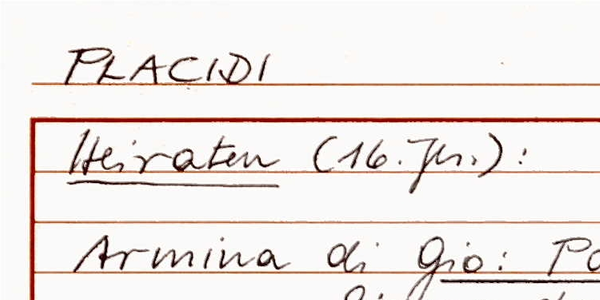 PLACIDI
Heiraten (16. Jh.):
Armina di Gio: Po